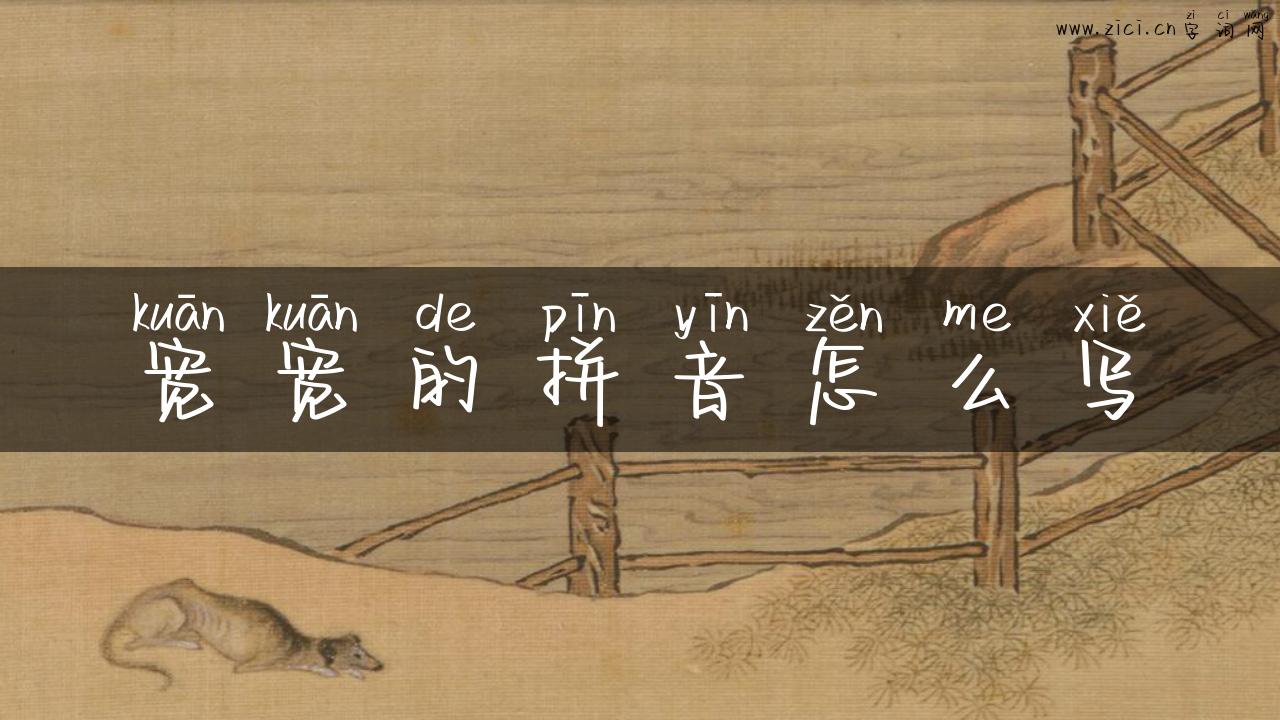 zi ci wang
www.zici.cn 字 词 网
kuān kuān de pīn yīn zěn me xiě
宽 宽 的 拼 音 怎 么 写